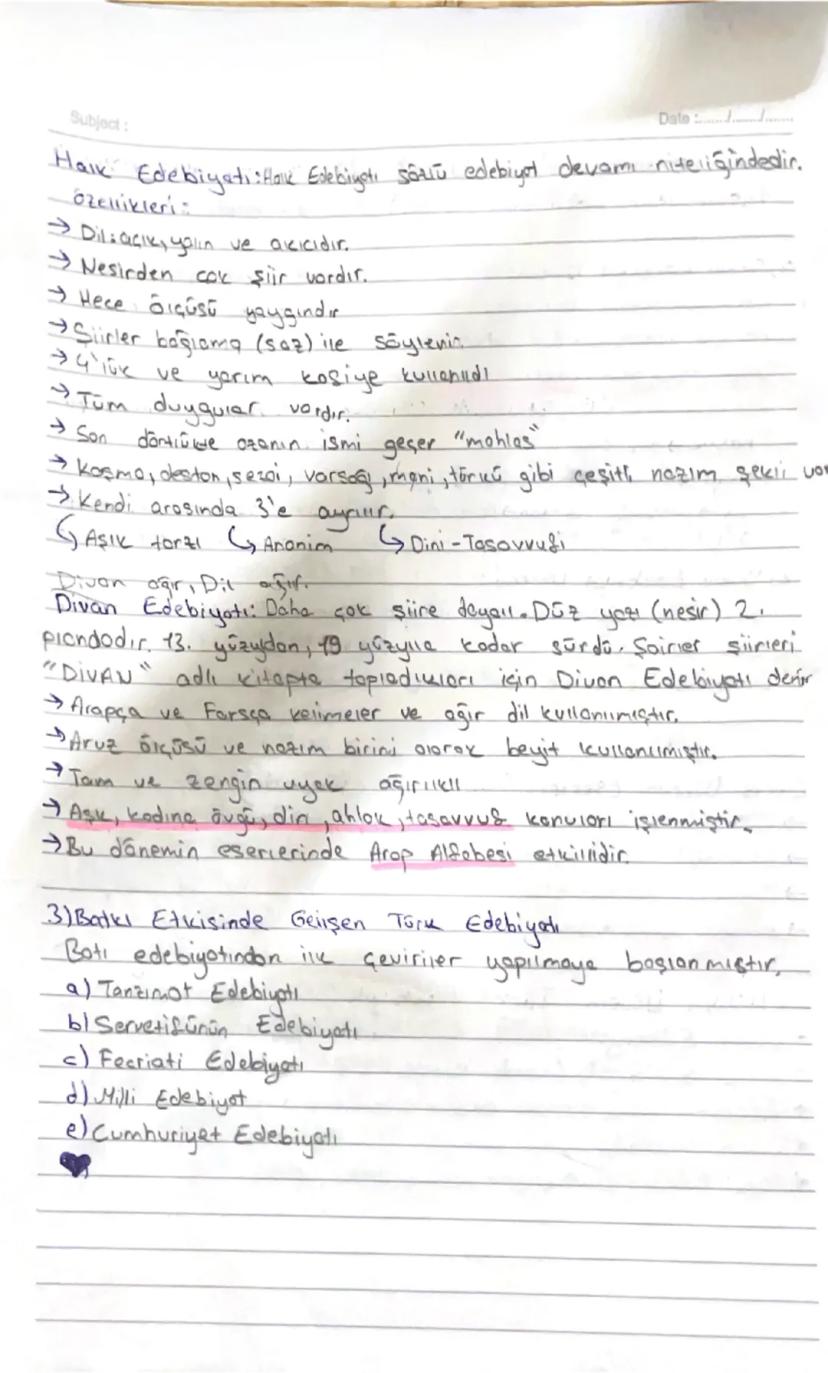 Subject :
Date :....../....../......
Halk Edebiyatı: Halk Edebiyatı sözlü edebiyat devamı niteliğindedir.
özellikleri:
→ Dil: açık, yalın ve akıcıdır.
→ Nesirden çok şiir vardır.
→ Hece ölçüsü yaygındır
→ Şiirler bağlama (saz) ile söylenir.
→ 4'lük ve yarım kafiye kullanıldı
→ Tüm duygular vardır.
→ Son dörtlükte ozanın ismi geçer "mahlas"
→ Koşma, destan, semai, varsağı, mani, türkü gibi çeşitli nazım şekli var
→ Kendi arasında 3'e ayrılır.
↪ Aşık tarzı ↪ Anonim ↪ Dini-Tasavvufi
Divan ağır, Dil ağır.
Divan Edebiyatı: Daha çok şiire dayalı. Düz yazı (nesir) 2.
plandadır. 13. yüzyıldan, 19 yüzyıla kadar sürdü. Şairler şiirleri
"DİVAN" adlı kitapta topladıkları için Divan Edebiyatı denir
→ Arapça ve Farsça kelimeler ve ağır dil kullanılmıştır.
→ Aruz ölçüsü ve nazım birimi olarak beyit kullanılmıştır.
→ Tam ve zengin uyak ağırlıklı
→ Aşk, kadına övgü, din, ahlak, tasavvuf konuları işlenmiştir.
→ Bu dönemin eserlerinde Arap Alfabesi etkilidir.
3) Batkı Etkisinde Gelişen Türk Edebiyatı
Batı edebiyatından ilk çeviriler yapılmaya başlanmıştır.
a) Tanzimat Edebiyatı
b) Servetifünün Edebiyatı
c) Fecriati Edebiyatı
d) Milli Edebiyat
e) Cumhuriyet Edebiyatı